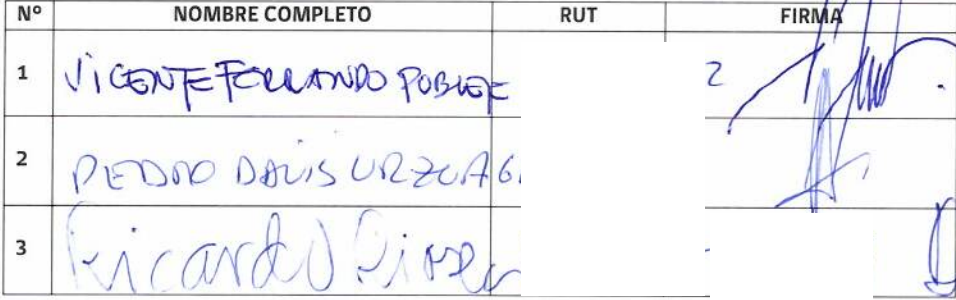 Nº NOMBRE COMPLETO RUT FIRMA
1 VICENTE FERRANDO POBLETE 2
2 PEDRO DAVIS URZUA G.
3 Ricardo